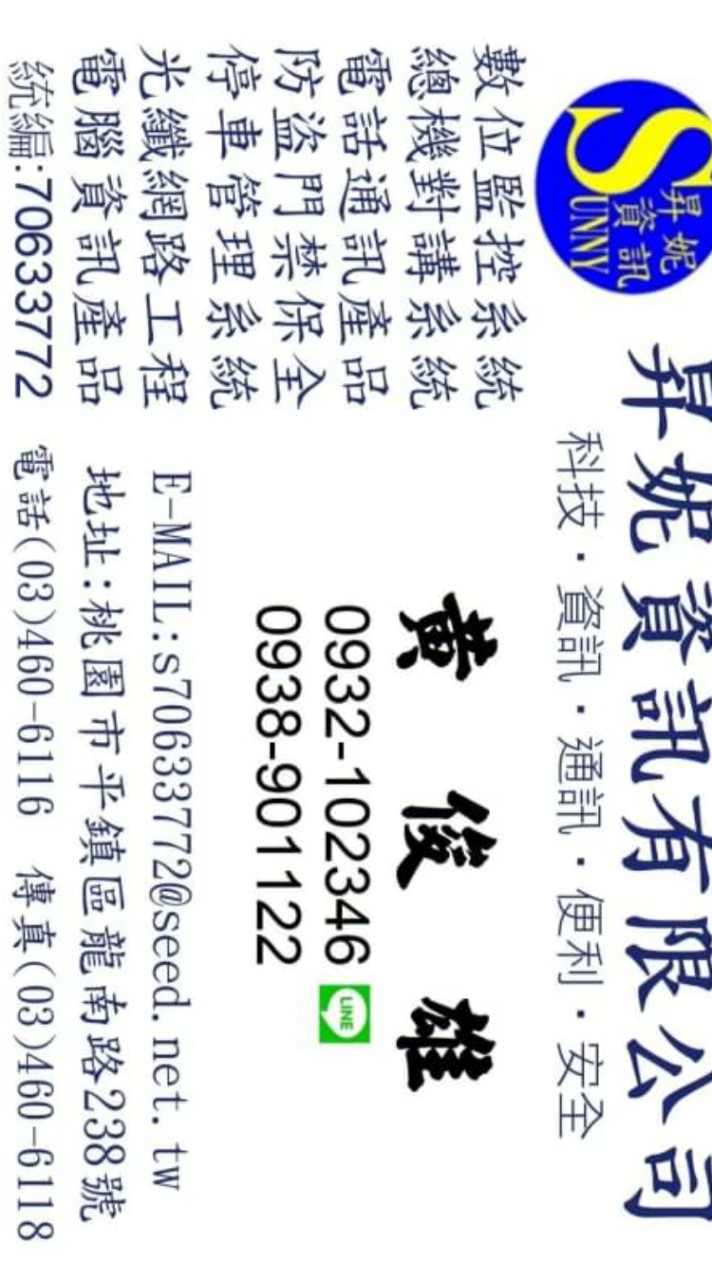 昇妮資訊
SUNNY
昇妮資訊有限公司
科技・資訊・通訊・便利・安全
數位監控系統
總機對講系統
電話通訊產品
防盜門禁保全
停車管理系統
光纖網路工程
電腦資訊產品
統編:70633772
黃俊雄
0932-102346 LINE
0938-901122
E-MAIL:s70633772@seed.net.tw
地址:桃園市平鎮區龍南路238號
電話(03)460-6116 傳真(03)460-6118